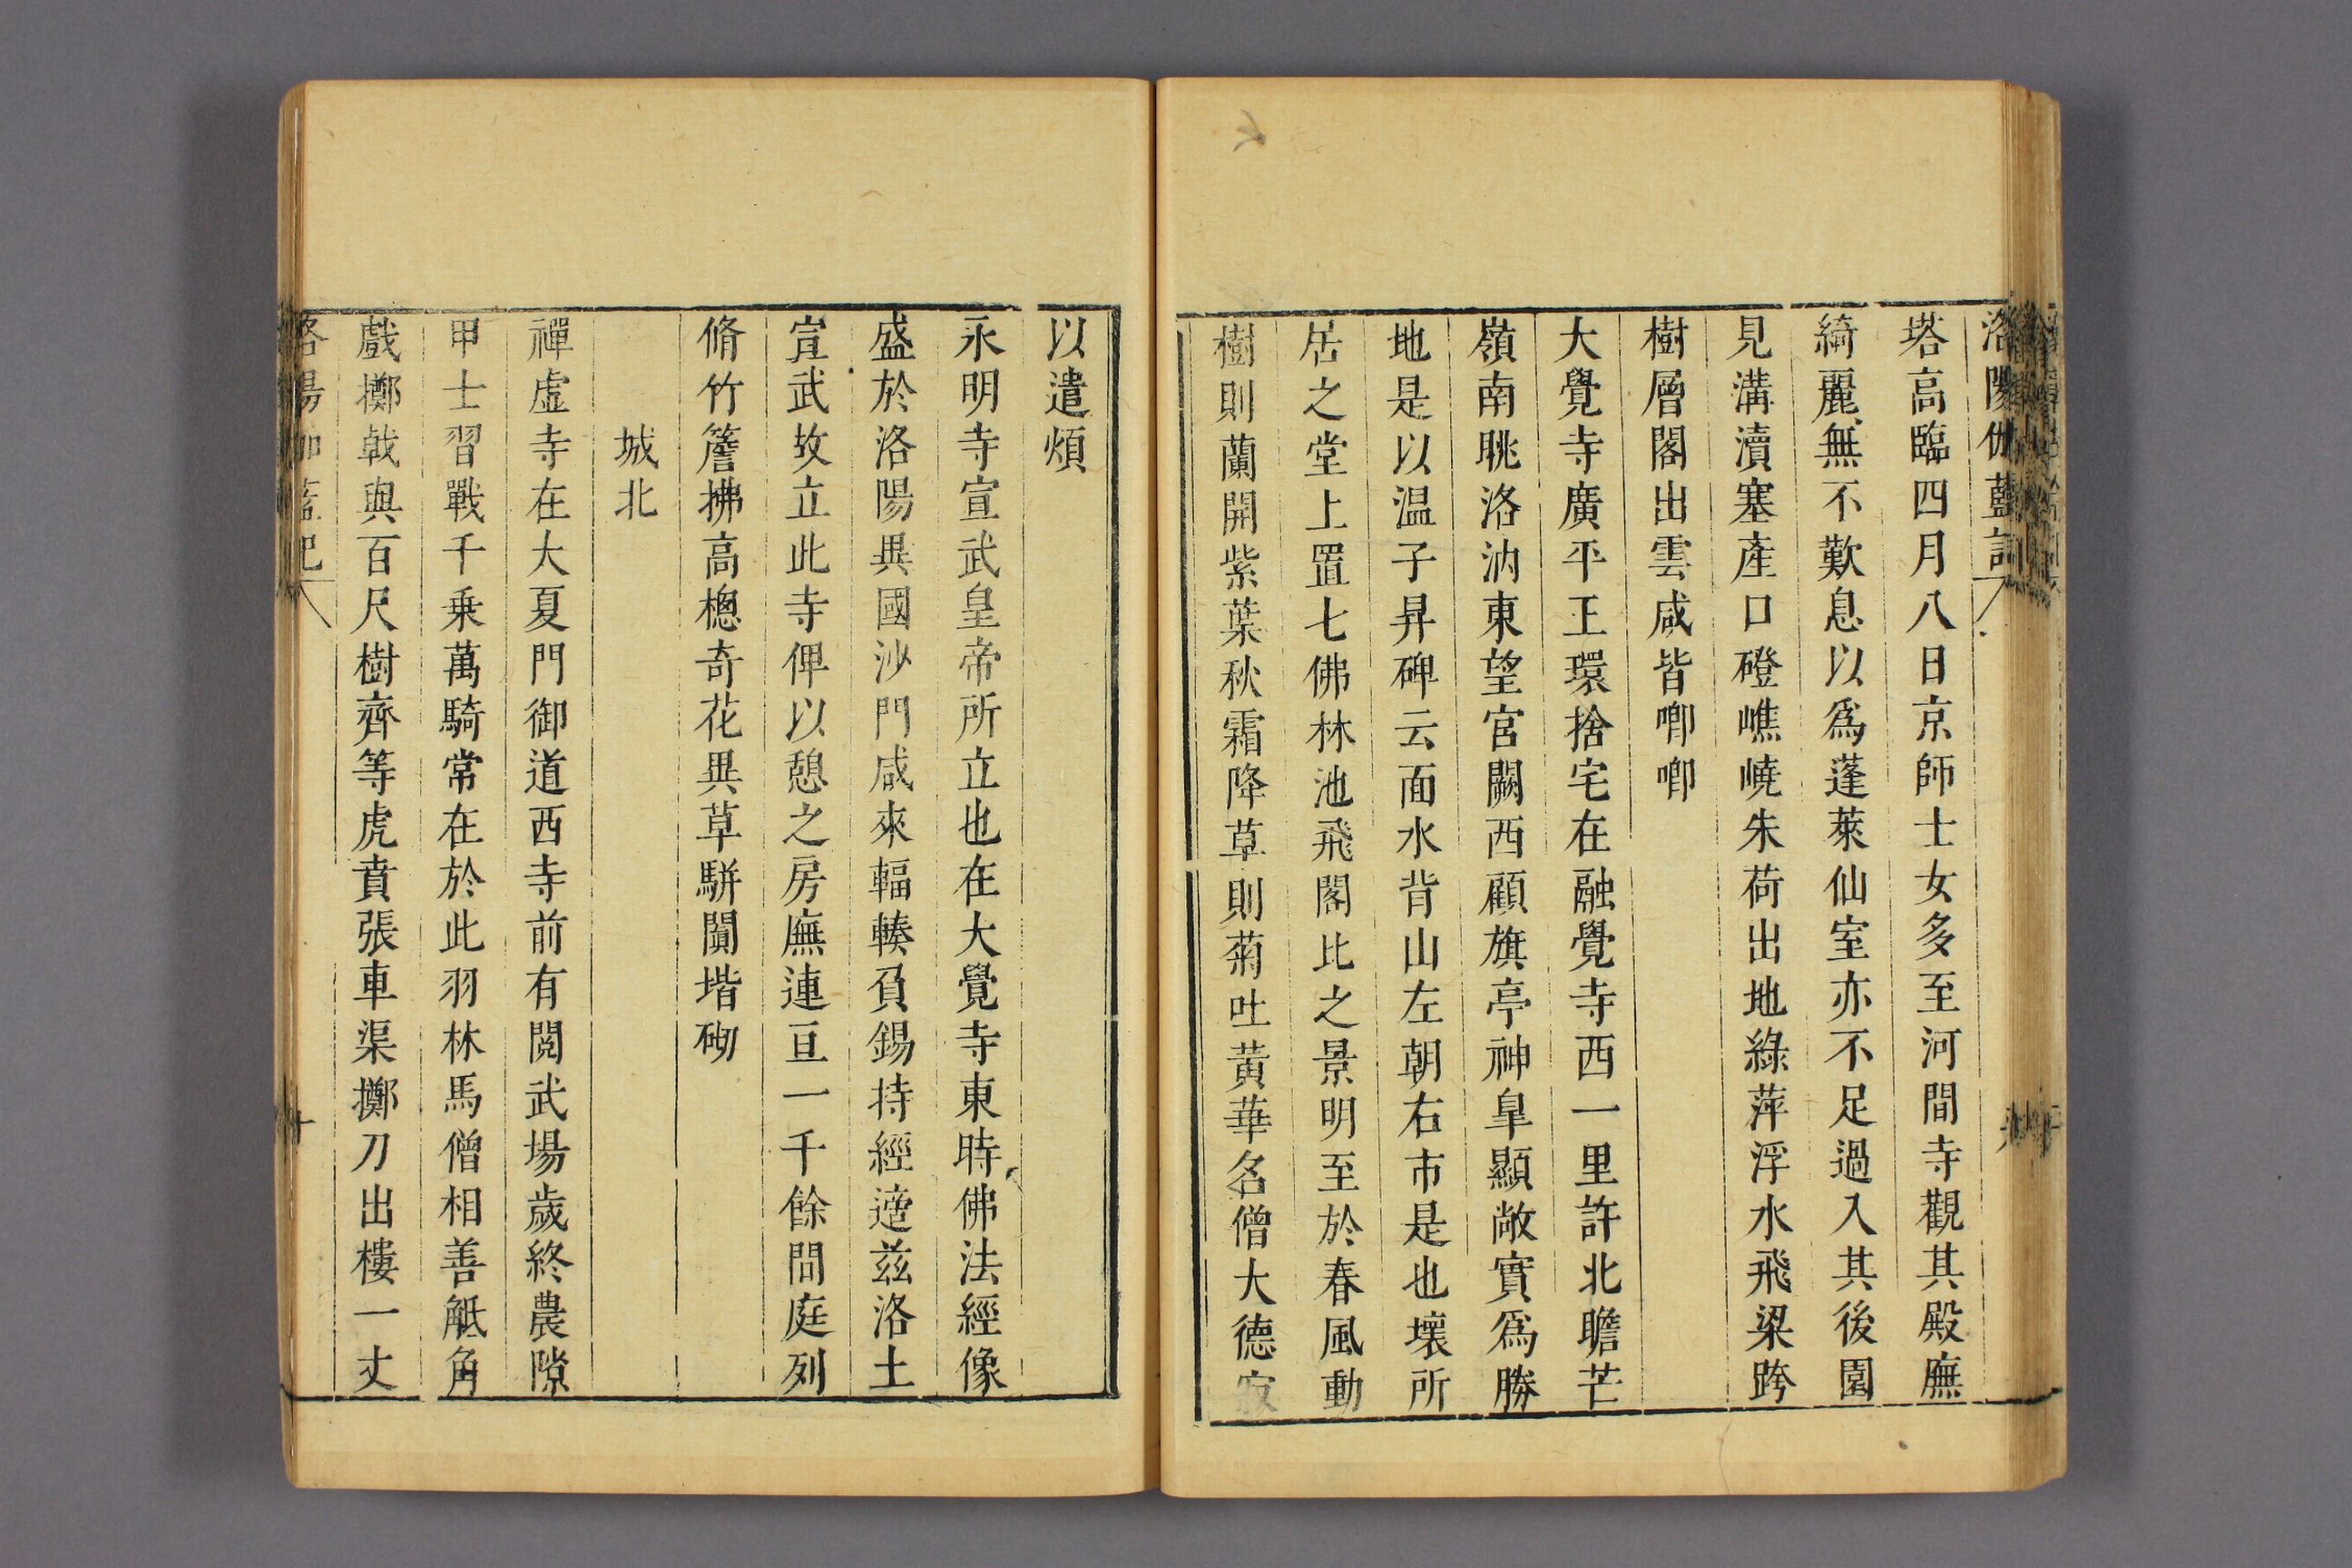 洛陽伽藍記
塔高臨四月八日京師士女多至河間寺觀其殿廡
綺麗無不歎息以爲蓬萊仙室亦不足過入其後園
見溝瀆塞產口磴嶕嶢朱荷出地綠萍浮水飛梁跨
樹層閣出雲咸皆唧唧
大覺寺廣平王環捨宅在融覺寺西一里許北瞻芒
嶺南眺洛汭東望宮闕西顧旗亭神臯顯敞實爲勝
地是以温子昇碑云面水背山左朝右市是也壞所
居之堂上置七佛林池飛閣比之景明至於春風動
樹則蘭開紫葉秋霜降草則菊吐黃華名僧大德寂
以遣煩
永明寺宣武皇帝所立也在大覺寺東時佛法經像
盛於洛陽異國沙門咸來輻輳負錫持經適兹洛土
宣武故立此寺俾以憩之房廡連亘一千餘間庭列
脩竹簷拂高檧奇花異草駢闐堦砌
城北
禪虛寺在大夏門御道西寺前有閱武場歲終農隙
甲士習戰千乗萬騎常在於此羽林馬僧相善觝角
戲擲戟與百尺樹齊等虎賁張車渠擲刀出樓一丈
洛陽伽藍記